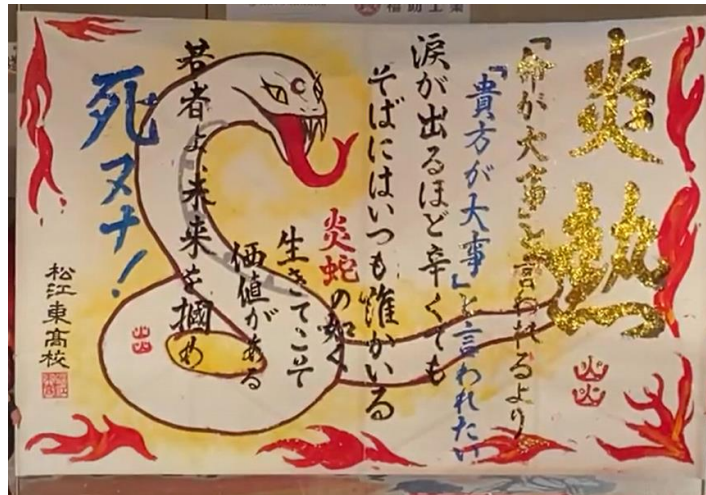 炎熱
「命が大事」と言われるより
「貴方が大事」と言われたい
涙が出るほど辛くても
そばにはいつも誰かいる
炎蛇の如く
生きてこそ
価値がある
若者よ、未来を掴め
死ヌナ！
松江東高校